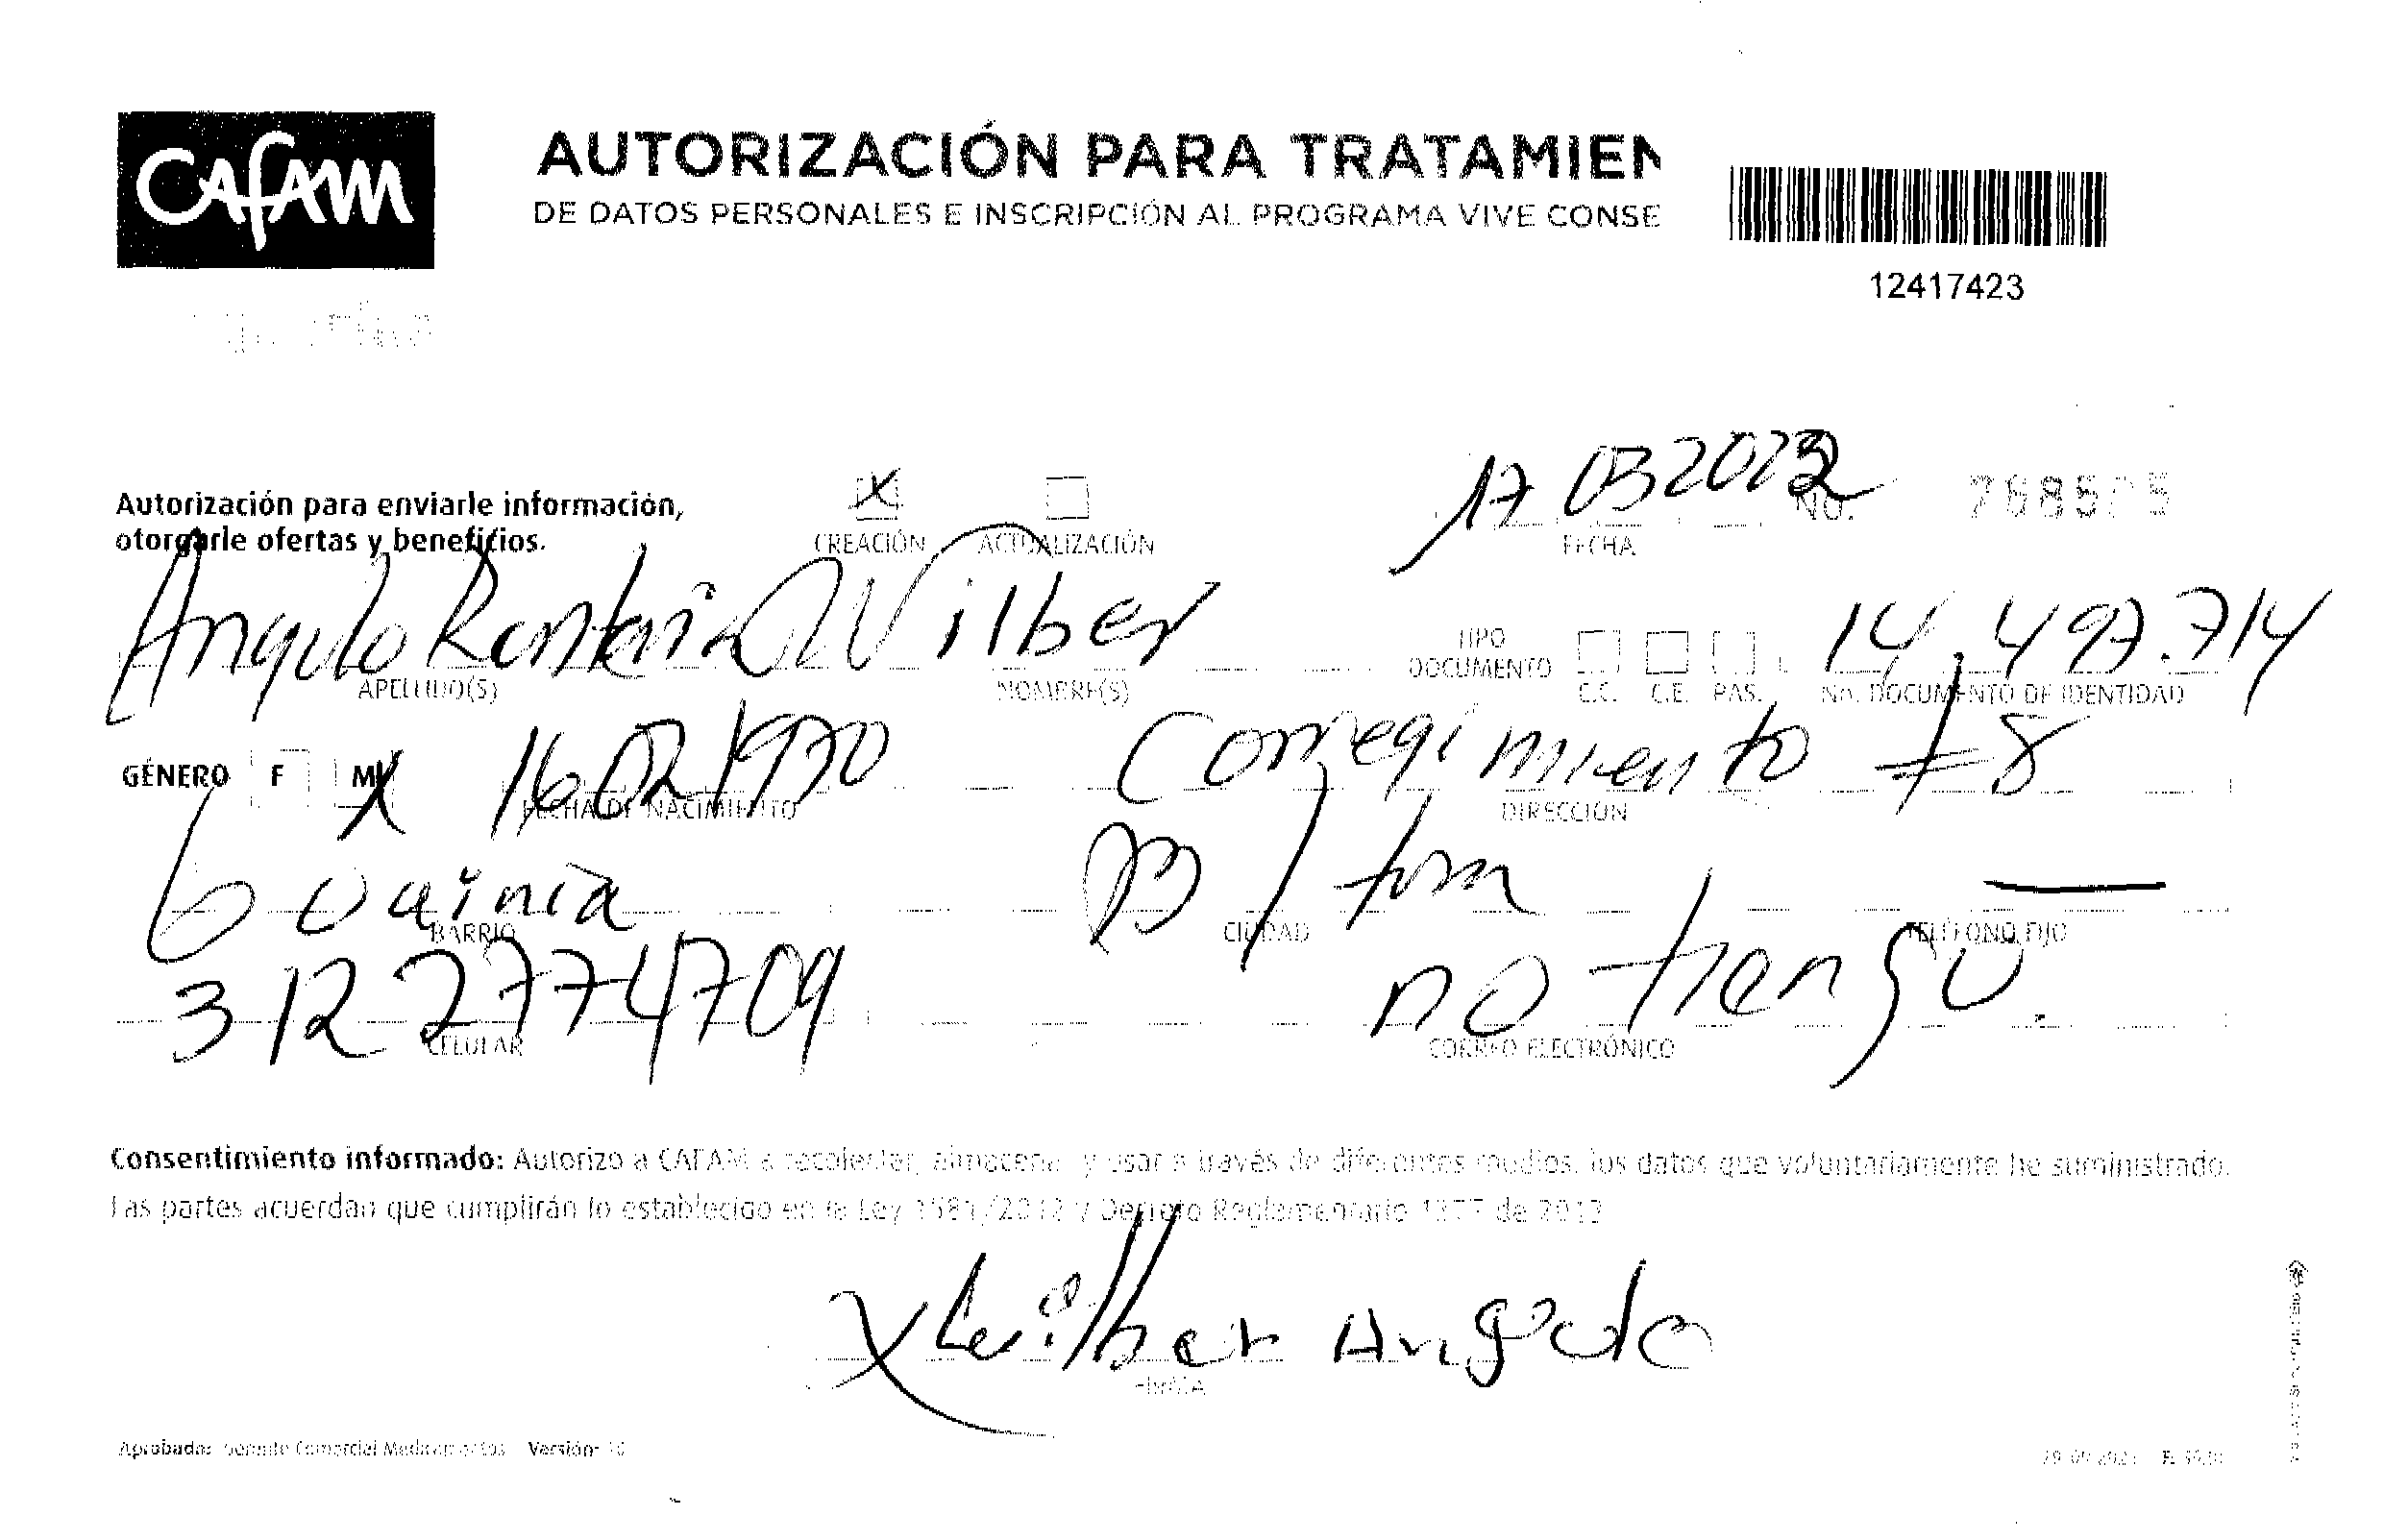 CAFAM
AUTORIZACIÓN PARA TRATAMIEN
DE DATOS PERSONALES E INSCRIPCIÓN AL PROGRAMA VIVE CONSE
12417423
Autorización para enviarle información,
otorgarle ofertas y beneficios.
X
CREACIÓN ACTUALIZACIÓN
17 03 2022
FECHA
No.
Angulo Renteria Wilber
APELLIDO(S) NOMBRE(S)
TIPO
DOCUMENTO
C.C. C.E. PAS.
14.497.714
No. DOCUMENTO DE IDENTIDAD
GÉNERO F M X 16 02 1970 Corregimiento # 8
FECHA DE NACIMIENTO DIRECCIÓN
B/tura
BARRIO CIUDAD TELÉFONO FIJO
312 2774709 no tengo.
CELULAR CORREO ELECTRÓNICO
Consentimiento informado: Autorizo a CAFAM a recolectar, almacenar y usar a través de diferentes medios, los datos que voluntariamente he suministrado.
Las partes acuerdan que cumplirán lo establecido en la Ley 1581/2012 y Decreto Reglamentario 1377 de 2013
X Wilber Angulo
FIRMA
Aprobado: Gerente Comercial Medicamentos Versión: 10